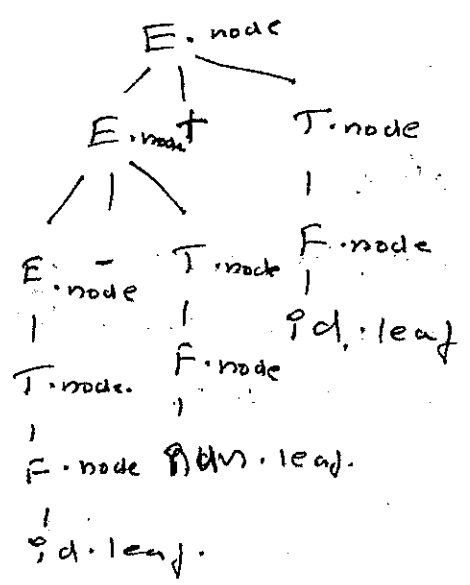 E. node
E.node + T.node
E.node - T.node F.node
id.leaf
T.node. F.node
F.node leaf.
id.leaf.